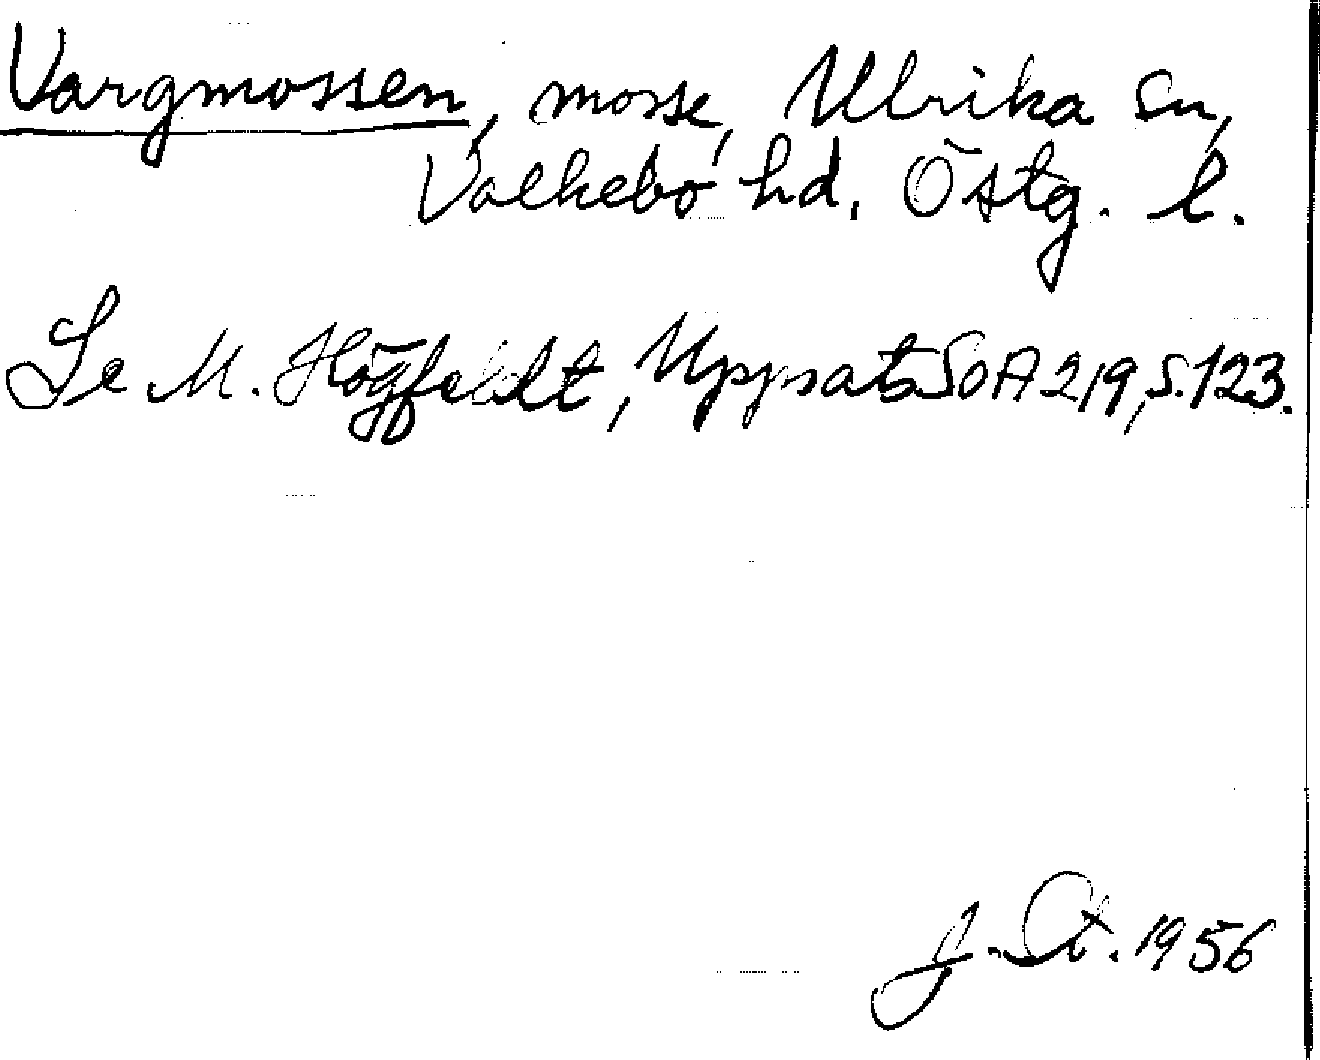 Vargmossen, mosse, Ulrika sn,
Valkebo hd. Östg. l.
Se M. Högfeldt, Uppsats SOA 219, s. 123.
J. St. 1956